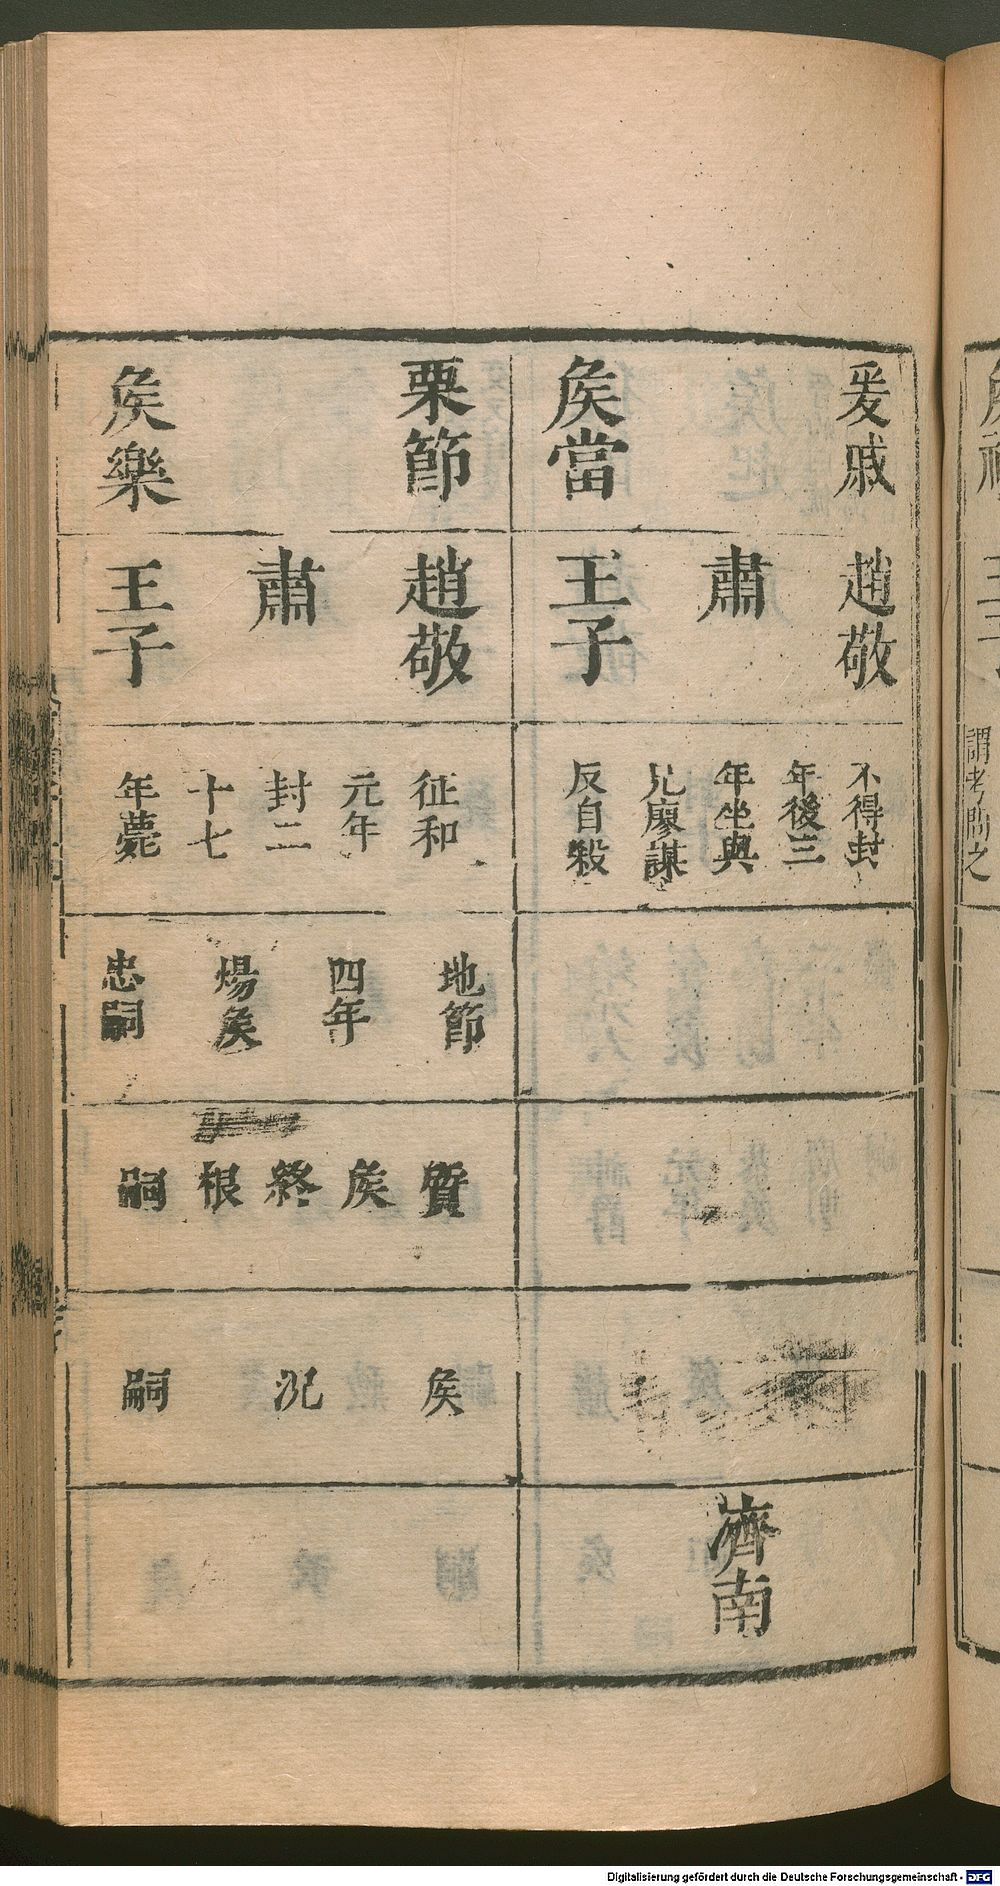 爰戚
侯當
趙敬
肅
王子
不得封
年後三
年坐與
兄廖謀
反自殺
濟南
栗節
侯樂
趙敬
肅
王子
征和
元年
封二
十七
年薨
地節
四年
煬侯
忠嗣
質
侯
終
根
嗣
侯
況
嗣
謂考問之
Digitalisierung gefördert durch die Deutsche Forschungsgemeinschaft - DFG